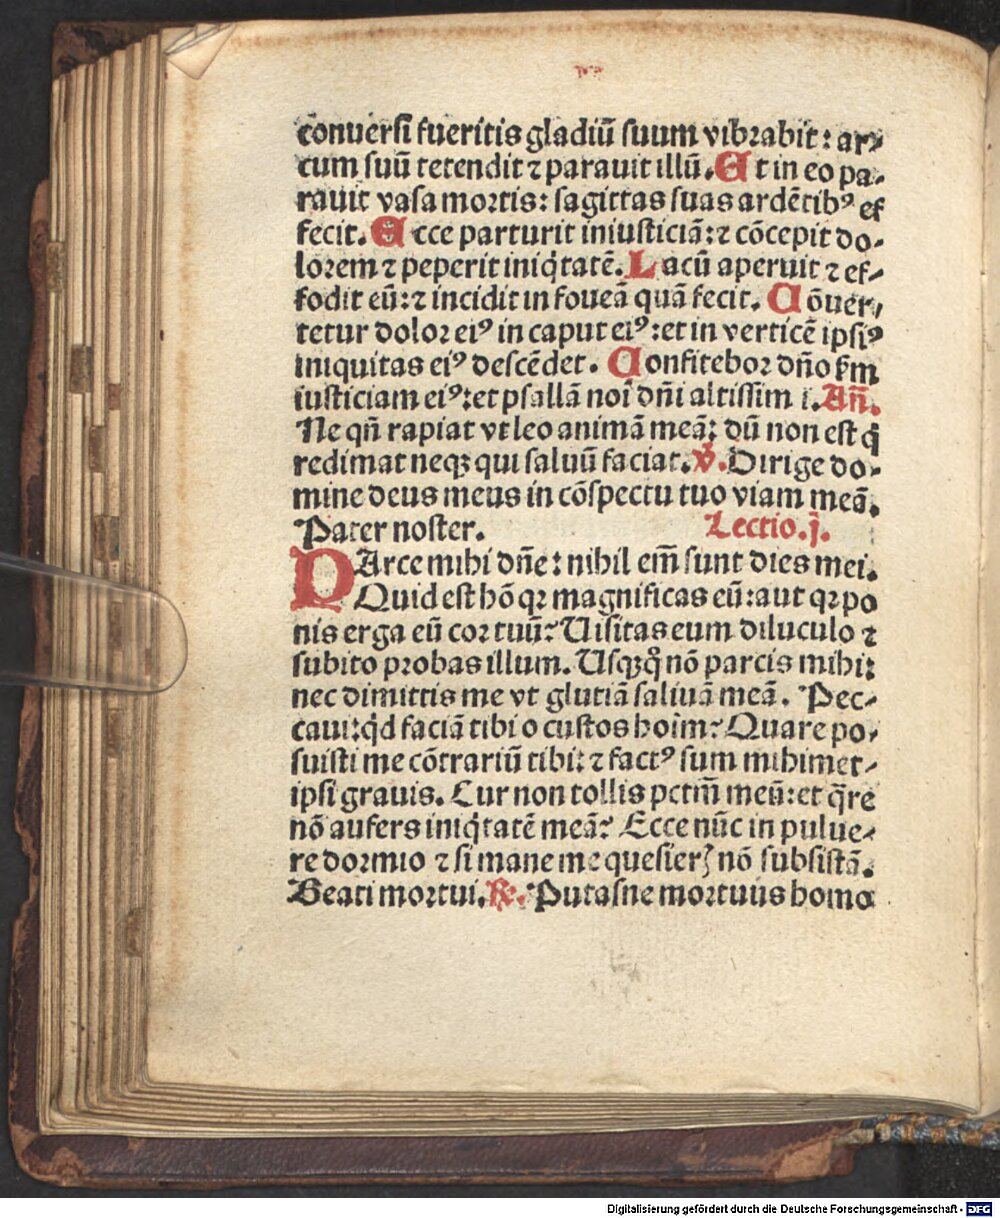 conuersi fueritis gladiū suum vibrabit: ar⸗
cum suū tetendit ⁊ parauit illū. Et in eo pa⸗
rauit vasa mortis: sagittas suas ardētibꝰ ef
fecit. Ecce parturit iniusticiā: ⁊ cōcepit do⸗
lorem ⁊ peperit iniq̄tatē. Lacū aperuit ⁊ ef⸗
fodit eū: ⁊ incidit in foueā quā fecit. Cōuer⸗
tetur dolor eiꝰ in caput eiꝰ: et in verticē ipsiꝰ
iniquitas eiꝰ descēdet. Confitebor dño ẜm
iusticiam eiꝰ: et psallā noī dñi altissimi. Añ.
Ne qñ rapiat vt leo animā meā: dū non est q̄
redimat neqꝫ qui saluū faciat. ℣. Dirige do⸗
mine deus meus in cōspectu tuo viam meā.
Pater noster. Lectio. j.
PArce mihi dñe: nihil em̄ sunt dies mei.
Quid est hō qꝛ magnificas eū: aut qꝛ po
nis erga eū cor tuū? Uisitas eum diluculo ⁊
subito probas illum. Usqꝫq̊ nō parcis mihi:
nec dimittis me vt glutiā saliuā meā. Pec⸗
caui: qd̄ faciā tibi o custos hoīm? Quare po⸗
suisti me cōtrariū tibi: ⁊ factꝰ sum mihimet⸗
ipsi grauis. Cur non tollis pctm̄ meū: et q̄re
nō aufers iniq̄tatē meā? Ecce nūc in pulue⸗
re dormio ⁊ si mane me quesierꝭ nō subsistā.
Beati mortui. ℟. Putasne mortuus homo
Digitalisierung gefördert durch die Deutsche Forschungsgemeinschaft - DFG